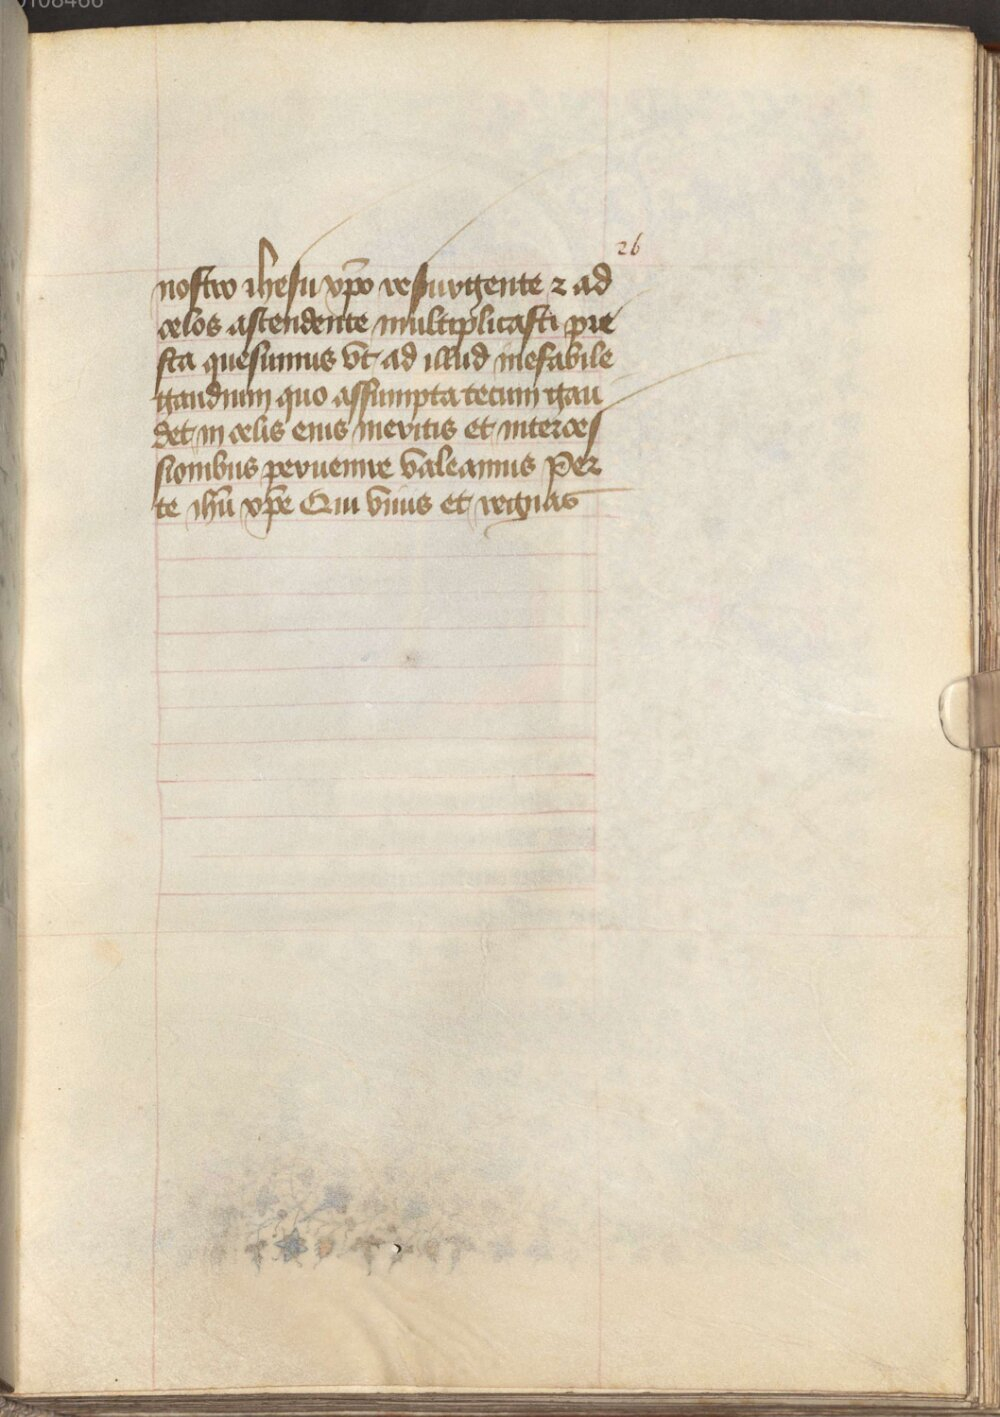 0108466
26
nostro ihesu xp̄o resurgente ⁊ ad
celos ascendente multiplicasti pre
sta quesumus vt ad illud inefabile
gaudium quo assumpta tecum gau
det in celis eius meritis et interces
sionibus peruenire valeamus Per
te ihū xp̄e Qui viuis et regnas